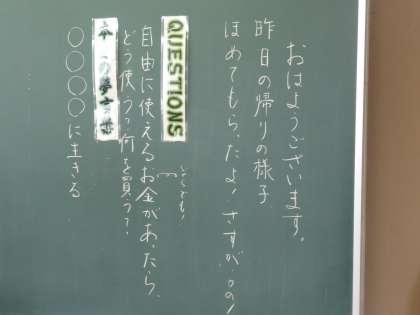 おはようございます。
昨日の帰りの様子
ほめてもらったよ！さすが
QUESTIONS
いくらでも！
自由に使えるお金があったら、
どう使う？何を買う？
の夢言葉
○○○○に生きる